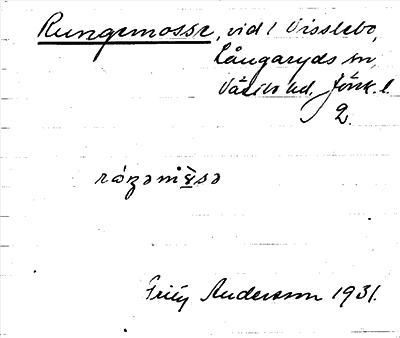 Rungemosse, vid 1 Visslebo,
Långaryds sn,
Västbo hd, Jönk. l.
2.
Fritz Andersson 1931.